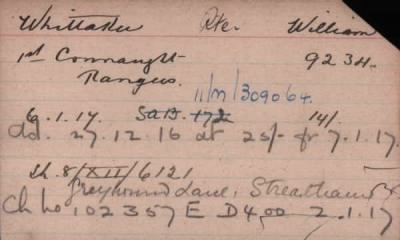 Whittaker Pte. William
1st Connaught 9234.
Rangers.
11/M/309064.
6.1.17. SaB. 172 14/-
dd. 27.12.16 at 25/- fr 7.1.17.
Ch. 8/XII/6121
Greyhound Lane, Streatham
Ch ho 102357 E D400 2.1.17